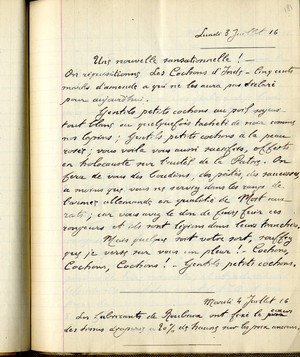 Lundi 3 Juillet 16
Une nouvelle sensationnelle ! —
On réquisitionne Les Cochons d'Inde — Cinquante
marks d'amende à qui ne les aura pas déclaré
pour aujourd'hui.
Gentils petits cochons au poil soyeux
tout blanc ou quelquefois tacheté de noir comme
nos lapins ; Gentils petits cochons à la peau
rosée ; vous voilà vous aussi sacrifiés, offerts
en holocauste sur l'autel de la Patrie. On
fera de vous des boudins, des pâtés, des saucisses
à moins que vous ne serviez dans les rangs de
l'armée allemande en qualité de Mort aux
rats ; car vous avez le don de faire fuir ces
rongeurs et ils sont légions dans leurs tranchées.
Mais quelque soit votre sort, souffrez
que je verse sur vous un pleur ! — Cochons,
Cochons, Cochons ! — Gentils petits cochons.
Mardi 4 Juillet 16
Les fabricants de Roubaix ont fixé le
des à 20% de hausse sur les prix